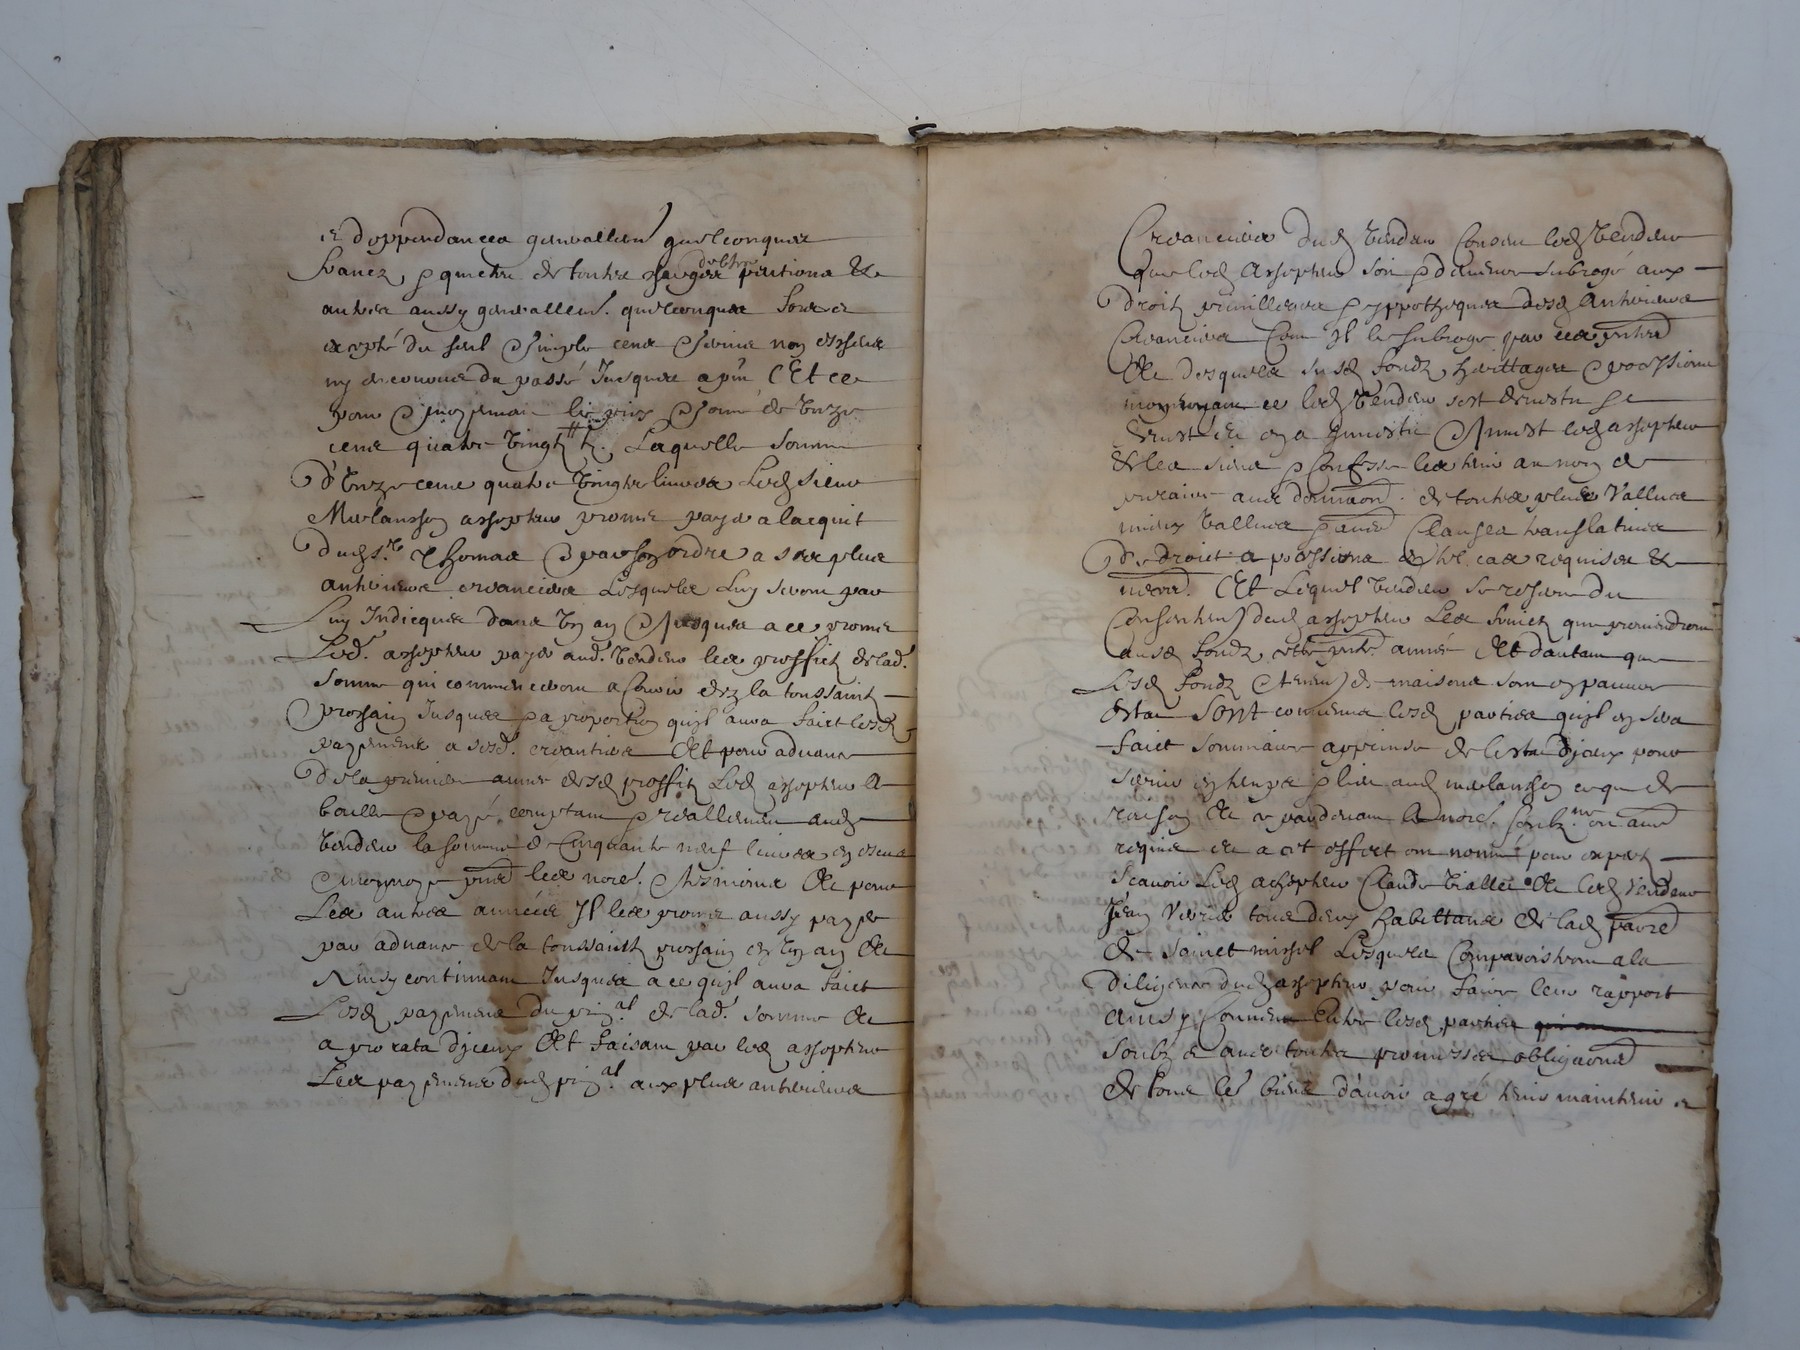 et deppendances generallem.^t quelconques
francz et quictes de toutes charges debtes pentions et
autres aussy generallem.^t quelconques sauf et
excepté du seul et simple cens et servis non excedé
ny encouru du passé jusques a pnt Et ce
pour et moyenant le prix et some de unze
cens quatre vingt lt. Laquelle somme
d'unze cens quatre vingtz livres Led sieur
Melansson achepteur promet payer a lacquit
dud s.r Thomas et par son ordre a ses plus
antérieurs creanciers Lesquels luy seront par
luy indicqués dans un an et jusques a ce promet
Led.^t achepteur payer aud.^t vendeur les proffictz de lad.^t
somme qui commenceront a courir dez la toussainctz
prochain jusques et a proportion quil aura faict lesd
payements a sesd.^t creantiers Et pour advance
de la premiere année desd proffictz Led achepteur a
baillé et payé comptant et reallement aud
vendeur la somme de cinquante neuf livres en escus
et monnoye pnt les nore.^s et tesmoins Et pour
Les autres années Il les promet aussy payer
par advance de la toussainctz prochain en un an Et
Ainsy continuant Jusques a ce quil aura faict
Lesd payements du prin^al de lad.^t somme Et
a prorata diceux Et faisant par led achepteur
Les payements dud prin^al aux plus antérieurs
Creanciers dud vendeur Consent led vendeur
Que led Achepteur soit et demeure subrogé aux
droitz privilleges et yppotheques desd Antérieurs
Creanciers Come Il le subroge par ces pntes
Et desquels susd fondz heritages et possessions
moyenant ce led vendeur sest devestu et se
devest et en a investu et Invest led achepteur
et les siens et Confesse les tenir au nom de
precaire avec donnaon de toutes plus Vallues
mieux vallues et avec Clauses translatives
De droict et possessions en tel cas requises et
necess. Et Lequel vendeur se reserve du
Consentem.^t dud achepteur Les fruictz qui proviendront
ausd fondz cette pnte année Et d'autant que
Lesd fondz et tenem.^t de maisons sont en pauvre
estat Sont convenus lesd parties quil en sera
faict sommaire apprinse de lestat diceux pour
servir en temps et lieu aud melansson ce que de
raison Et y pardevant les nores soubz.^nes ont avec
requis et a cet effect ont nommé pour expertz
Scavoir Led achepteur Claude viallet Et led vendeur
Jean Verret tous deux habittans de lad parre
de Sainct michel Lesquels Comparoistront a la
diligence dud achepteur pour faire leur rapport
ainsy Convenu Entre lesd parties
Soubz et avec toutes promesses obligaons
de tous les biens d'avoir agré tenir maintenir et